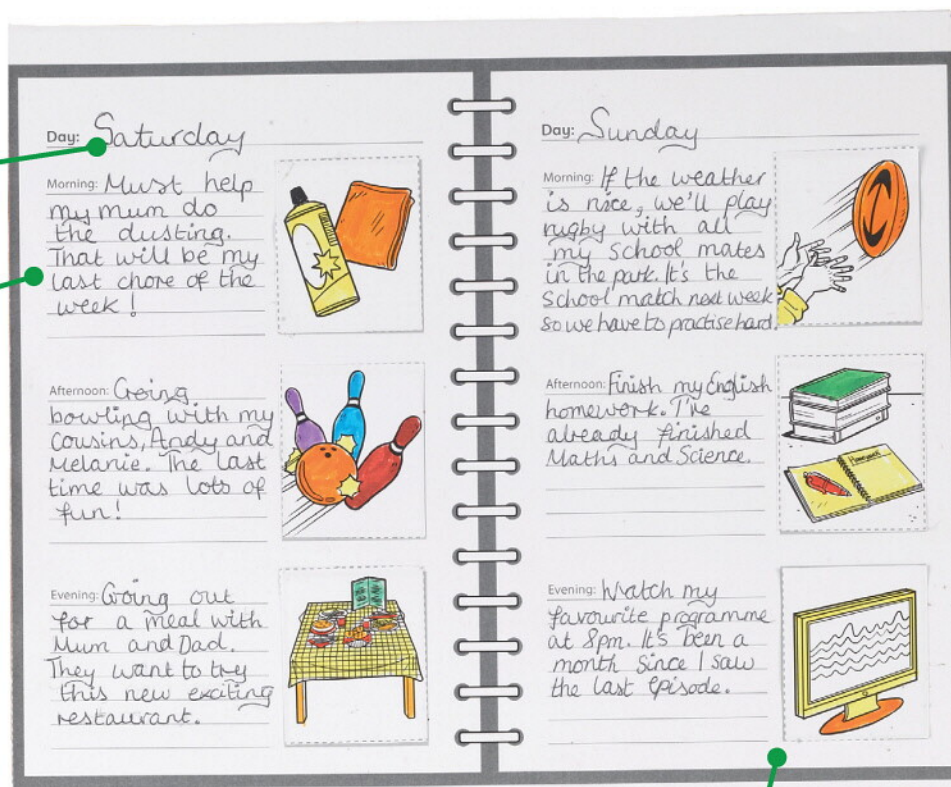 Day: Saturday
Morning: Must help
my mum do
the dusting.
That will be my
last chore of the
week!
Afternoon: Going
bowling with my
cousins, Andy and
Melanie. The last
time was lots of
fun!
Evening: Going out
for a meal with
Mum and Dad.
They want to try
this new exciting
restaurant.
Day: Sunday
Morning: If the weather
is nice, we'll play
rugby with all
my school mates
in the park. It's the
school match next week
so we have to practise hard.
Afternoon: Finish my English
homework. I've
already finished
Maths and Science.
Homework
Evening: Watch my
favourite programme
at 8pm. It's been a
month since I saw
the last episode.